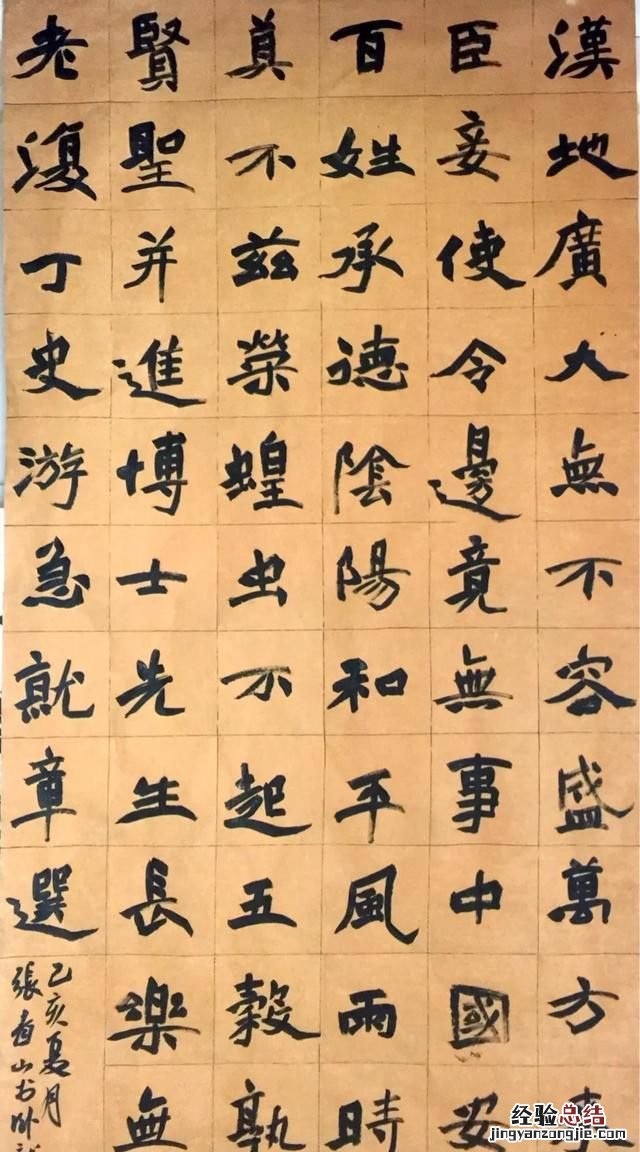 漢地廣大無不容盛萬方
臣妾使令邊竟無事中國安
百姓承德陰陽和平風雨時
莫不茲榮蝗虫不起五穀孰
賢聖并進博士先生長樂無
老復丁史游急就章選
己亥夏月
張春山书卧
经验总结
jingyanzongjie.com